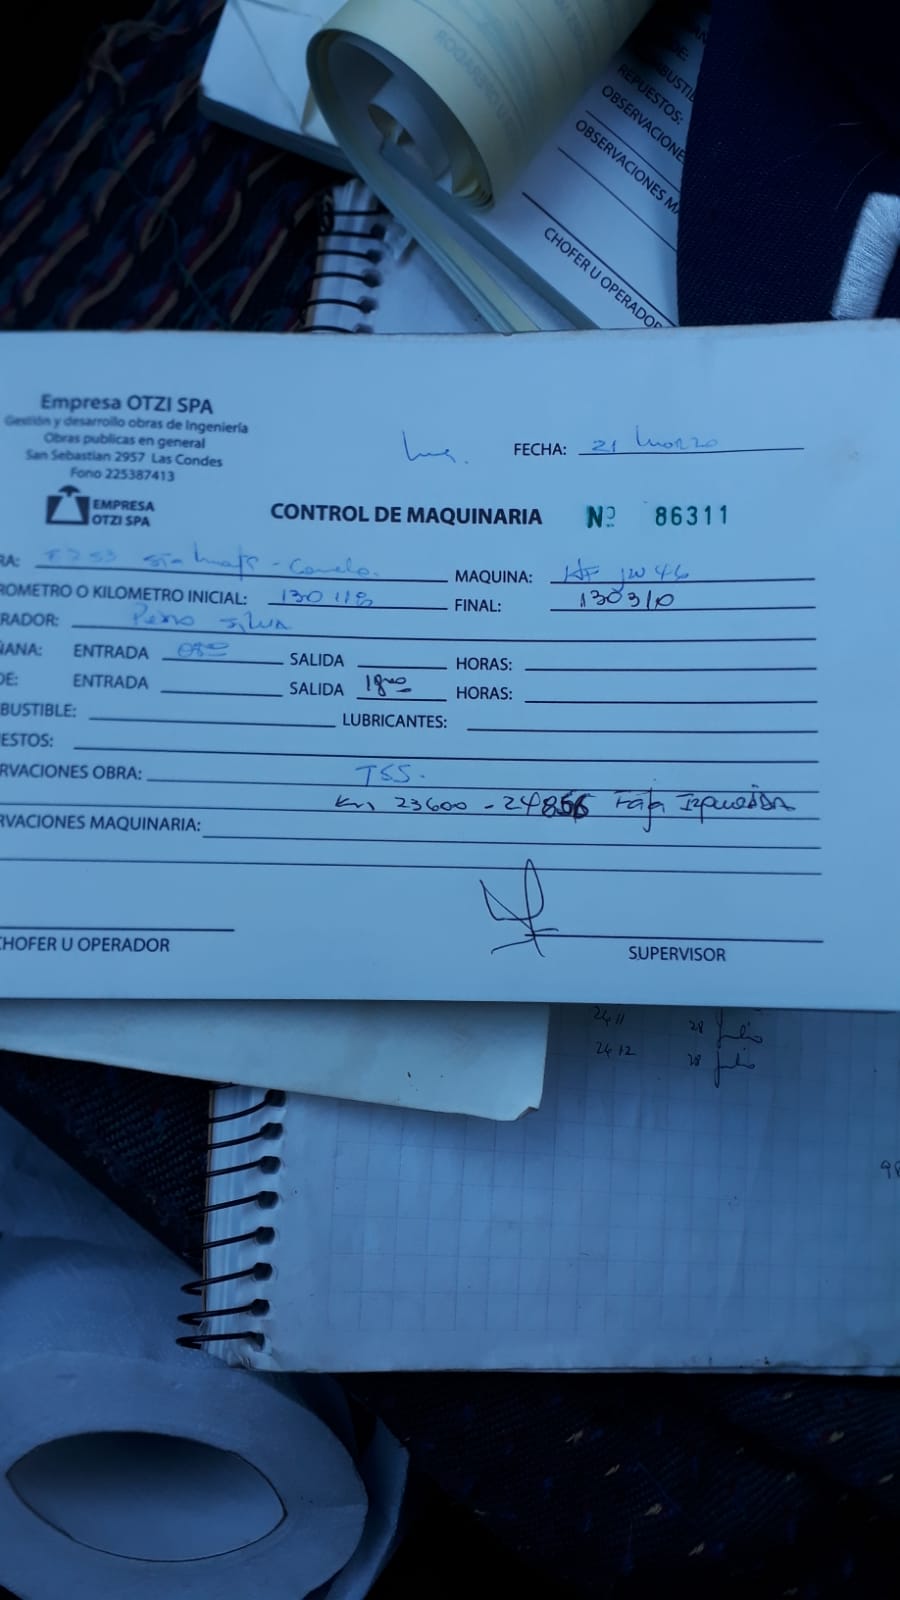 ROQARBOU
DE:
MBUSTIBL
REPUESTOS:
OBSERVACIONE
OBSERVACIONES MA
CHOFER U OPERADOR
Empresa OTZI SPA
Gestión y desarrollo obras de Ingeniería
Obras publicas en general
San Sebastian 2957 Las Condes
Fono 225387413
FECHA: 21 Marzo
EMPRESA
OTZI SPA
CONTROL DE MAQUINARIA Nº 86311
RA:
MAQUINA:
ROMETRO O KILOMETRO INICIAL: 130118 FINAL: 130310
RADOR: Pedro Silva
ÑANA: ENTRADA 0800 SALIDA HORAS:
DE: ENTRADA SALIDA 1900 HORAS:
BUSTIBLE: LUBRICANTES:
ESTOS:
RVACIONES OBRA: TSS.
Km 23600 - 24856 Faja Izquierda
RVACIONES MAQUINARIA:
CHOFER U OPERADOR SUPERVISOR
2411 28 julio
2412 28 julio